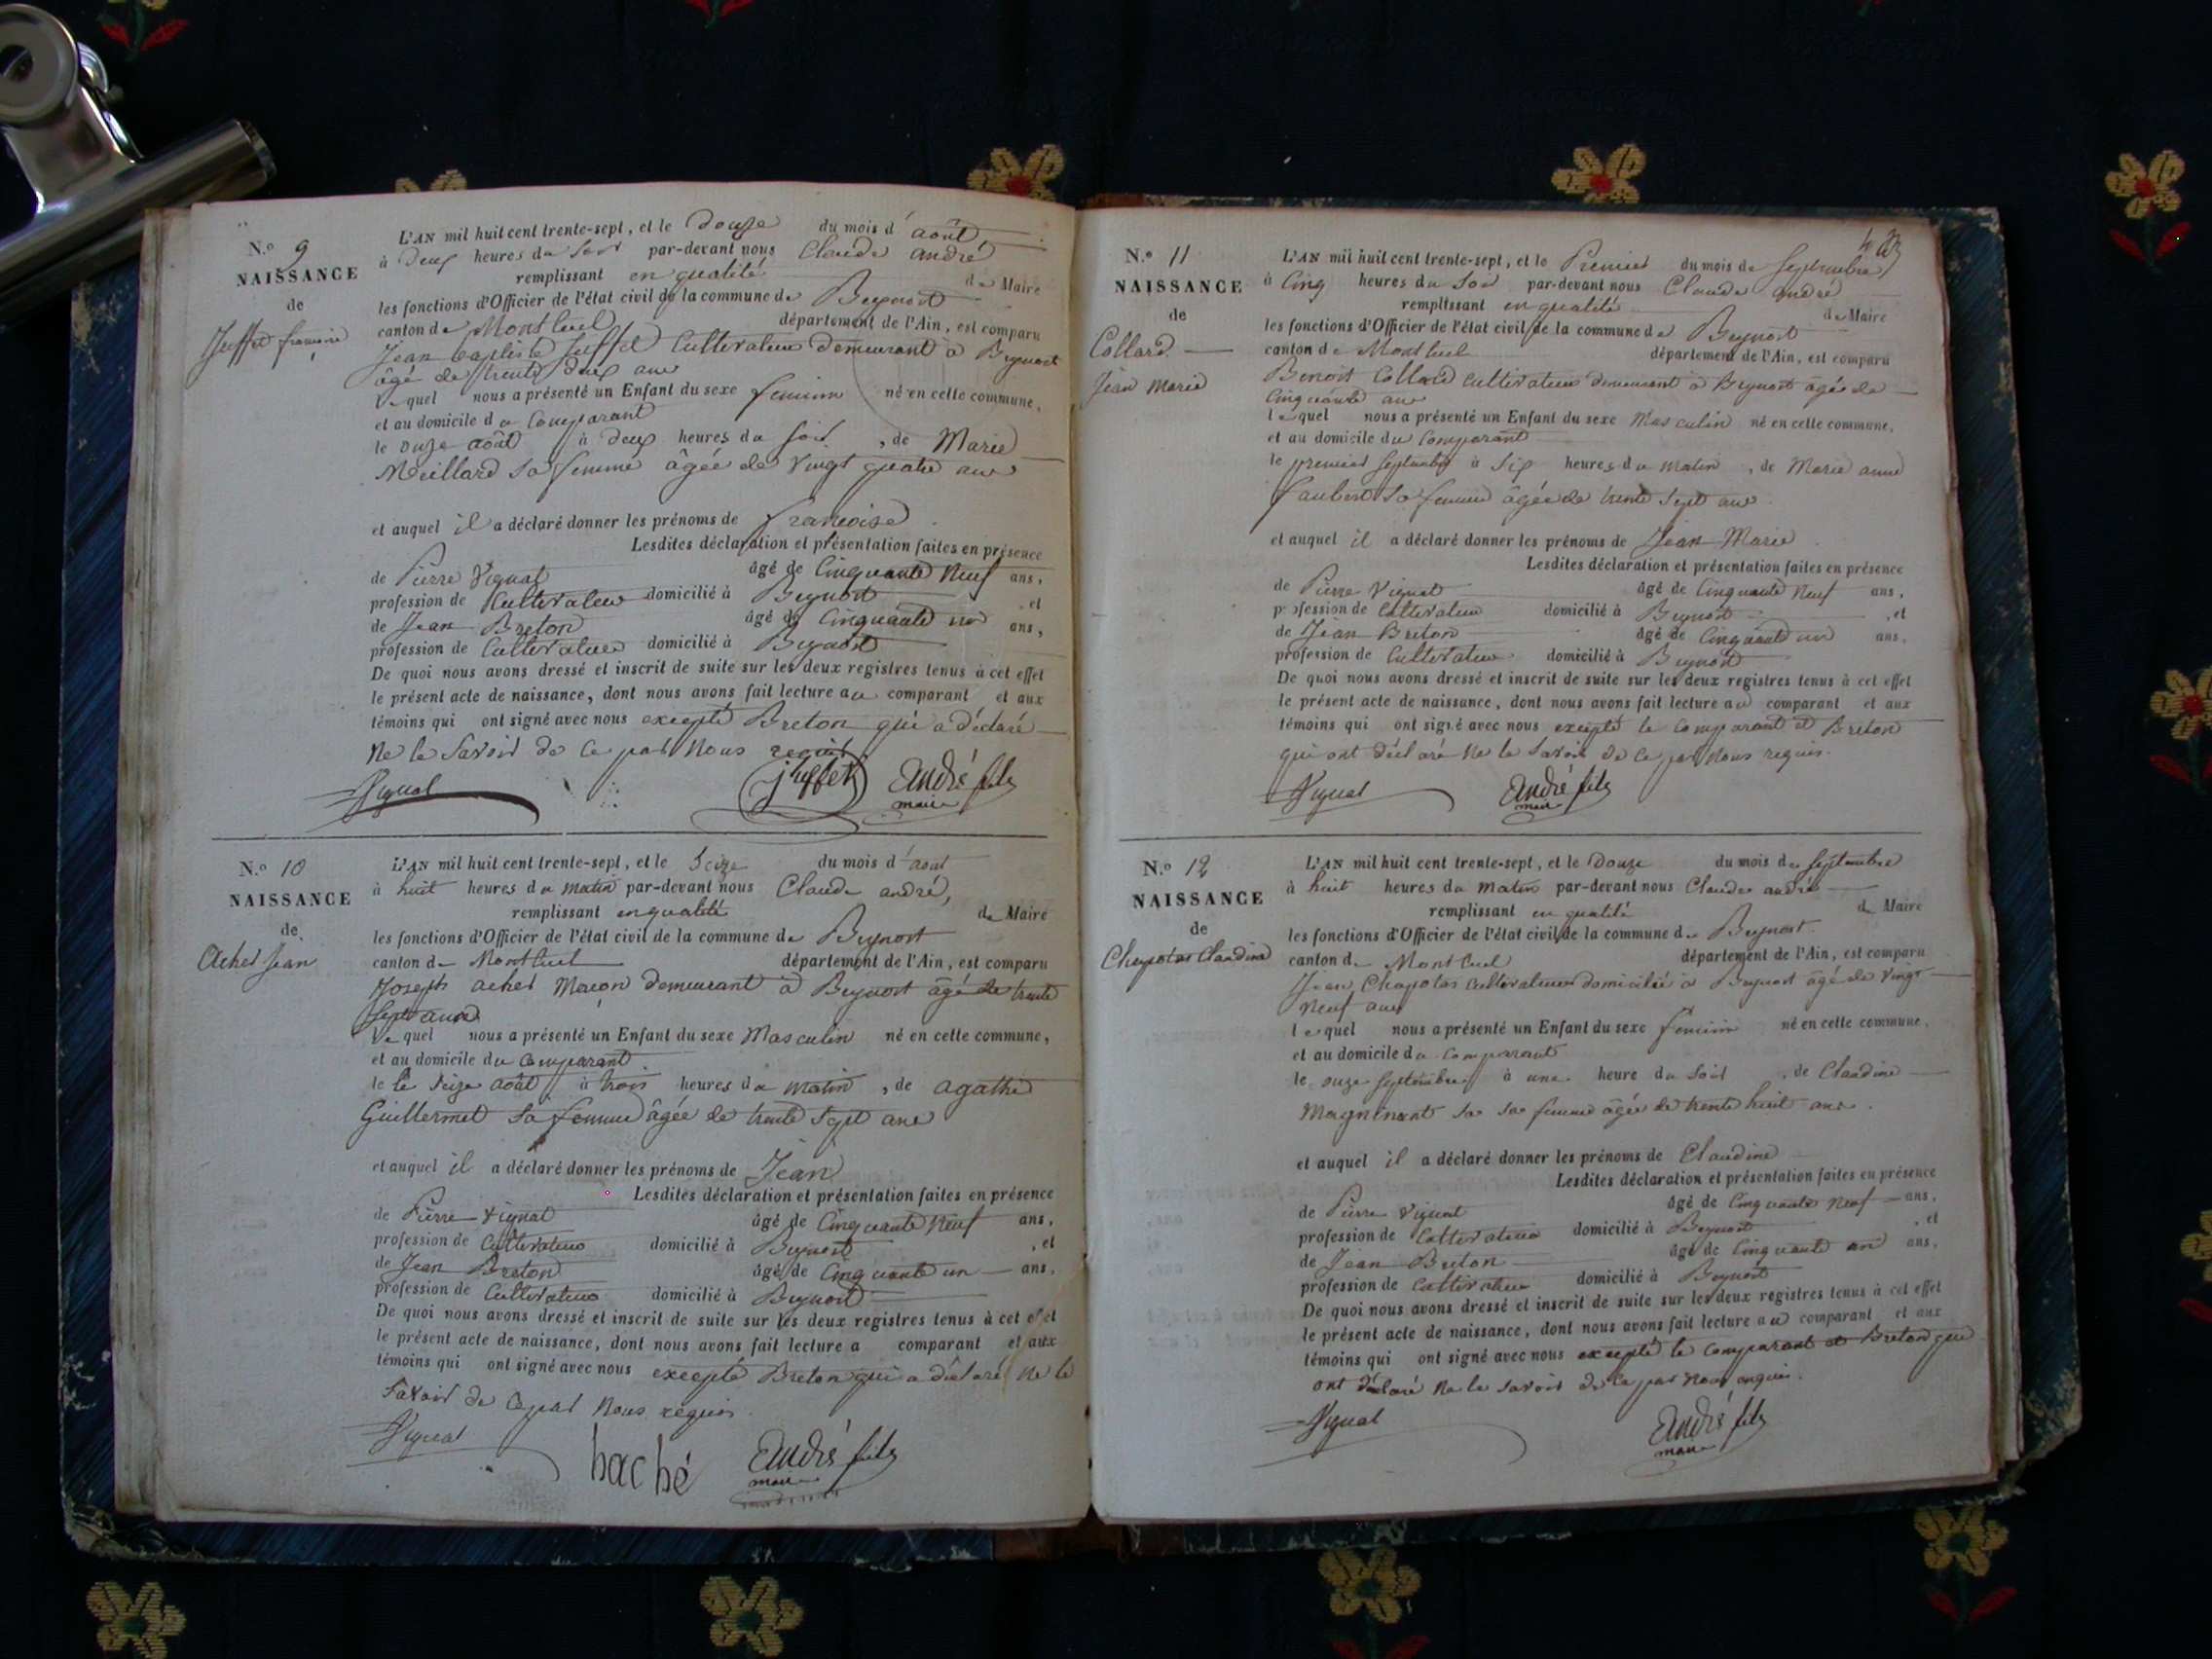 N.º 9
NAISSANCE
de
Juffet françoise
L'AN mil huit cent trente-sept, et le Douze du mois d'août
à Deux heures du Soir par-devant nous Claude andré
remplissant en qualité de Maire
les fonctions d'Officier de l'état civil de la commune de Beynost
canton de Montluel département de l'Ain, est comparu
Jean baptiste Juffet Cultivateur demeurant à Beynost
âgé de trente deux ans
Lequel nous a présenté un Enfant du sexe feminin né en cette commune,
et au domicile du Comparant
le onze août à deux heures du soir, de Marie
Meillard sa femme âgée de vingt quatre ans
et auquel il a déclaré donner les prénoms de françoise
Lesdites déclaration et présentation faites en présence
de Pierre Vignat âgé de Cinquante Neuf ans,
profession de Cultivateur domicilié à Beynost et
de Jean Breton âgé de Cinquante un ans,
profession de Cultivateur domicilié à Beynost
De quoi nous avons dressé et inscrit de suite sur les deux registres tenus à cet effet
le présent acte de naissance, dont nous avons fait lecture au comparant et aux
témoins qui ont signé avec nous excepté Breton qui a déclaré
ne le Savoir de ce par Nous requis
Vignat juffet André fils
maire
N.º 10
NAISSANCE
de
Achet Jean
L'AN mil huit cent trente-sept, et le Seize du mois d'août
à huit heures du matin par-devant nous Claude andré,
remplissant en qualité de Maire
les fonctions d'Officier de l'état civil de la commune de Beynost
canton de Montluel département de l'Ain, est comparu
Joseph achet Maçon demeurant à Beynost âgé de trente
Sept ans
Lequel nous a présenté un Enfant du sexe Masculin né en cette commune,
et au domicile du Comparant
le le Seize août à trois heures du matin, de agathe
Guillermet sa femme âgée de trente Sept ans
et auquel il a déclaré donner les prénoms de Jean
Lesdites déclaration et présentation faites en présence
de Pierre Vignat âgé de Cinquante Neuf ans,
profession de Cultivateur domicilié à Beynost, et
de Jean Breton âgé de Cinquante un ans,
profession de Cultivateur domicilié à Beynost
De quoi nous avons dressé et inscrit de suite sur les deux registres tenus à cet effet
le présent acte de naissance, dont nous avons fait lecture a comparant et aux
témoins qui ont signé avec nous excepté Breton qui a déclaré ne le
Savoir de ce par Nous requis
Vignat haché André fils
maire
N.º 11
NAISSANCE
de
Collard
Jean Marie
L'AN mil huit cent trente-sept, et le Premier du mois de Septembre
à Cinq heures du Soir par-devant nous Claude andré
remplissant en qualité de Maire
les fonctions d'Officier de l'état civil de la commune de Beynost
canton de Montluel département de l'Ain, est comparu
Benoit Collard cultivateur demeurant à Beynost âgée de
Cinquante ans
lequel nous a présenté un Enfant du sexe Masculin né en cette commune,
et au domicile du Comparant
le premier Septembre à Six heures du matin, de Marie anne
faubert sa femme âgée de trente Sept ans
et auquel il a déclaré donner les prénoms de Jean Marie
Lesdites déclaration et présentation faites en présence
de Pierre Vignat âgé de Cinquante Neuf ans,
profession de Cultivateur domicilié à Beynost, et
de Jean Breton âgé de Cinquante un ans,
profession de Cultivateur domicilié à Beynost
De quoi nous avons dressé et inscrit de suite sur les deux registres tenus à cet effet
le présent acte de naissance, dont nous avons fait lecture au comparant et aux
témoins qui ont signé avec nous excepté le Comparant et Breton
qui ont déclaré Ne le Savoir de ce par Nous requis.
Vignat André fils
maire
N.º 12
NAISSANCE
de
Chapotas Claudine
L'AN mil huit cent trente-sept, et le Douze du mois de Septembre
à huit heures du matin par-devant nous Claude andré
remplissant en qualité de Maire
les fonctions d'Officier de l'état civil de la commune de Beynost
canton de Montluel département de l'Ain, est comparu
Jean Chapotas Cultivateur domicilié à Beynost âgé de Vingt
Neuf ans
lequel nous a présenté un Enfant du sexe feminin né en cette commune,
et au domicile du Comparant
le onze Septembre à une heure du Soir, de Claudine
Magninant sa sa femme âgée de trente huit ans.
et auquel il a déclaré donner les prénoms de Claudine
Lesdites déclaration et présentation faites en présence
de Pierre Vignat âgé de Cinquante Neuf ans,
profession de Cultivateur domicilié à Beynost, et
de Jean Breton âgé de Cinquante un ans,
profession de Cultivateur domicilié à Beynost
De quoi nous avons dressé et inscrit de suite sur les deux registres tenus à cet effet
le présent acte de naissance, dont nous avons fait lecture au comparant et aux
témoins qui ont signé avec nous excepté le Comparant et Breton qui
ont déclaré Ne le Savoir de ce par Nous requis.
Vignat André fils
maire